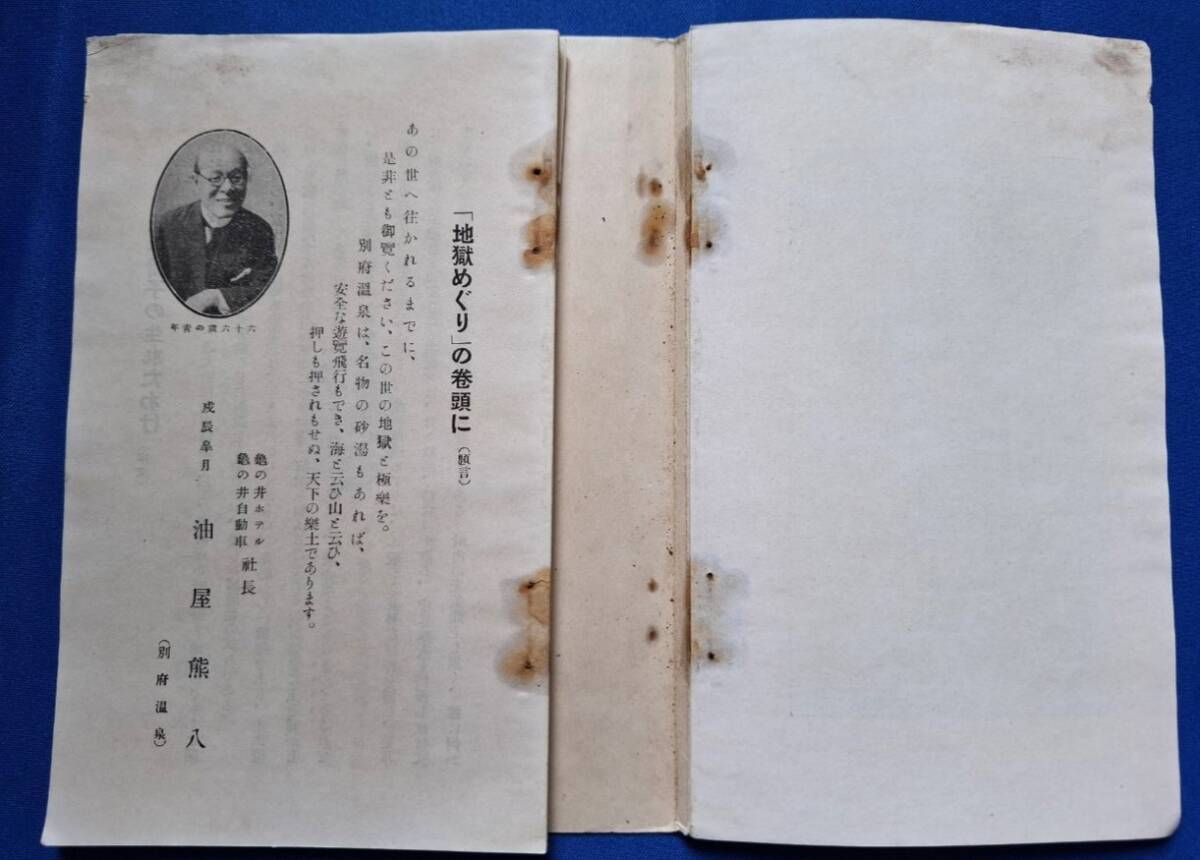 「地獄めぐり」の巻頭に(願言)
あの世へ往かれるまでに、
是非とも御覽ください、この世の地獄と極樂を。
別府溫泉は、名物の砂湯もあれば、
安全な遊覽飛行もでき、海と云ひ山と云ひ、
押しも押されもせぬ、天下の樂土であります。
龜の井ホテル
龜の井自動車 社長
戊辰皐月 油屋熊八
(別府溫泉)
六十六歲の靑年